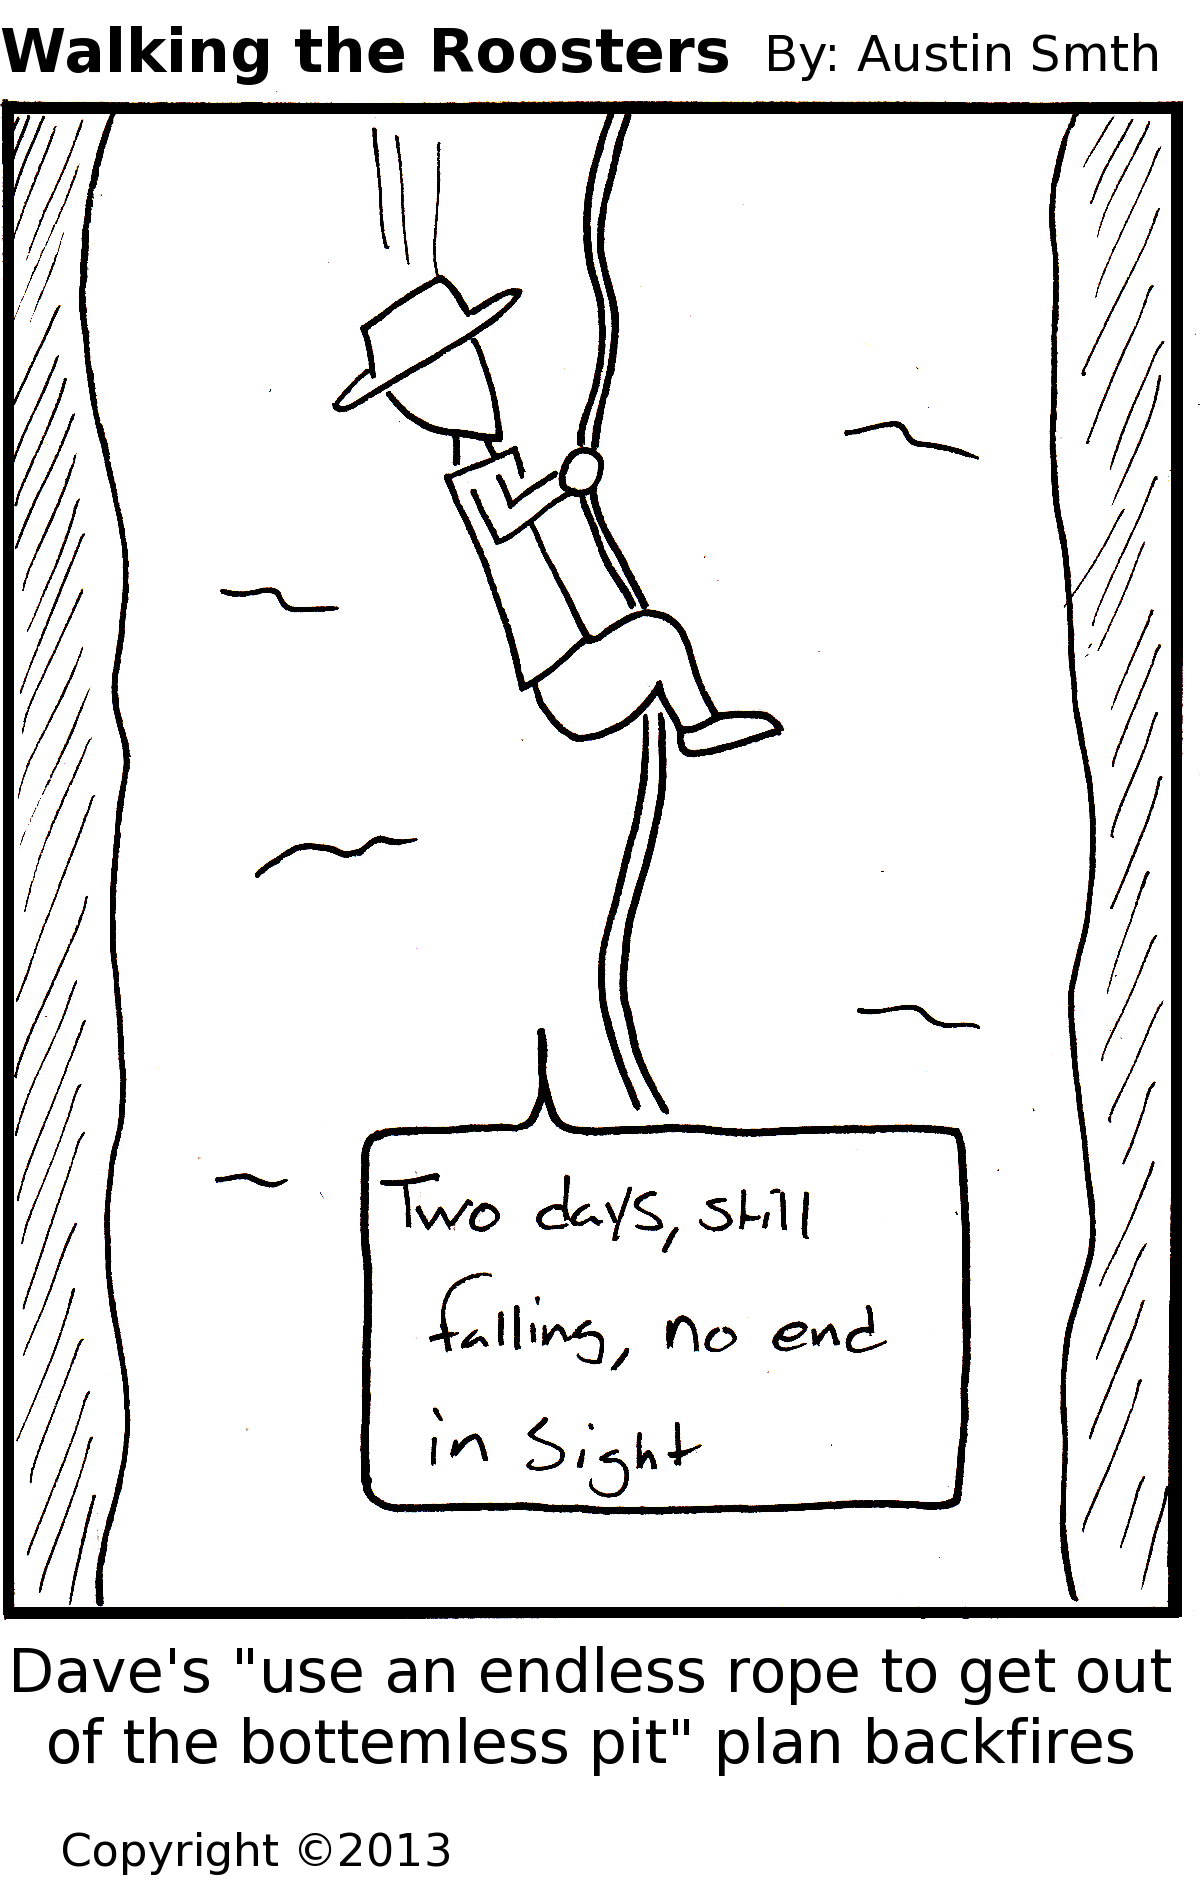 Walking the Roosters By: Austin Smth
Two days, still
falling, no end
in Sight
Dave's "use an endless rope to get out
of the bottemless pit" plan backfires
Copyright ©2013